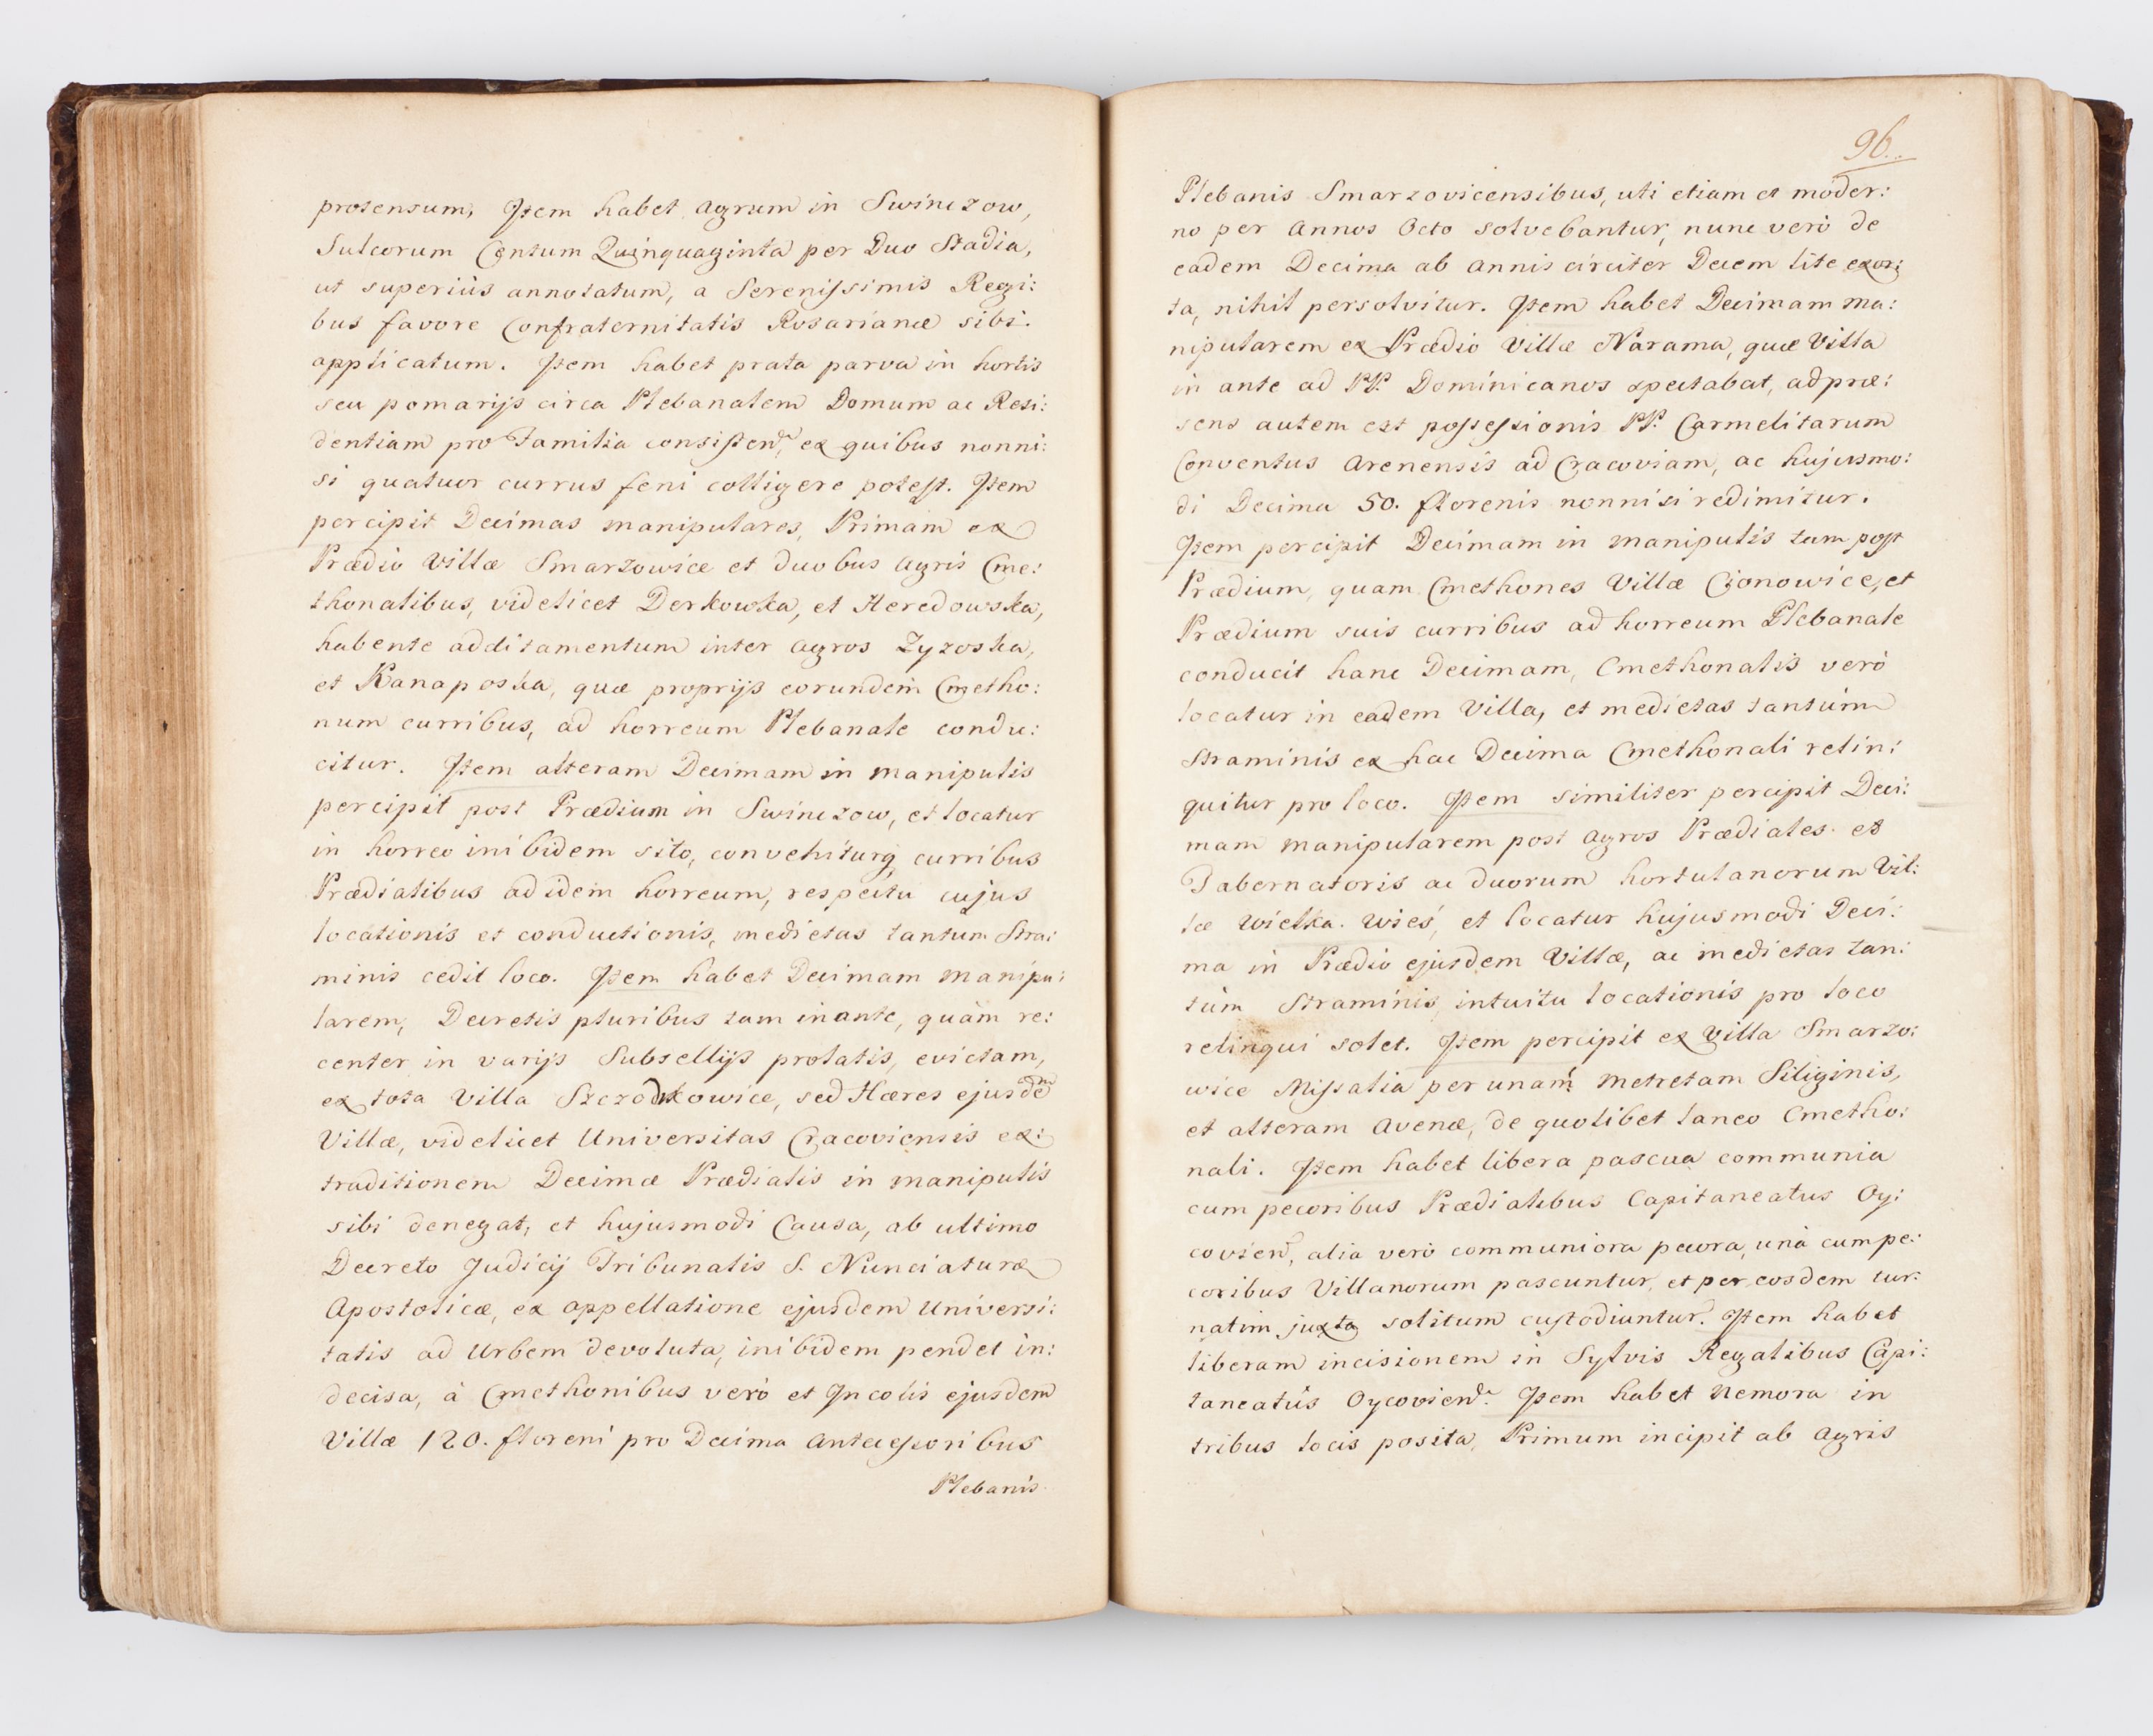 protensum, Item habet agrum in Swinczow,
Sulcorum Centum Quinquaginta per Duo Stadia,
ut superiùs annotatum, a Serenissimis Regi:
bus favore Confraternitatis Rosarianæ sibi.
applicatum. Item habet prata parva in hortis
seu pomarijs circa Plebanalem Domum ac Resi:
dentiam pro Familia consisten, ex quibus nonni:
si quatuor currus feni colligere potest. Item
percipit Decimas manipulares, Primam ex
Prædio Villæ Smarzowice et duobus agris Cme:
thonalibus, videlicet Derkowska, et Heredowska,
habente additamentum inter agros Zyzoska,
et Kanaposka, quæ proprijs eorundem Cmetho:
num curribus, ad horreum Plebanale condu:
citur. Item alteram Decimam in manipulis
percipit post Prædium in Swinczow, et locatur
in horreo inibidem sito, convehiturq curribus
Prædialibus ad idem horreum, respectu cujus
locationis et conductionis, medietas tantum Stra:
minis cedit loco. Item habet Decimam manipu:
larem, Decretis pluribus tam inante, quàm re:
center in varijs Subsellijs prolatis, evictam,
ex tota Villa Szczodkowice, sed Hæres ejusdem
Villæ, videlicet Universitas Cracoviensis ex:
traditionem Decimæ Prædialis in manipulis
sibi denegat, et hujusmodi Causa, ab ultimo
Decreto Judicij Tribunalis S. Nunciaturæ
Apostolicæ, ex appellatione ejusdem Universi:
tatis ad Urbem devoluta, inibidem pendet in:
decisa, à Cmethonibus verò et Incolis ejusdem
Villæ 120. floreni pro Decima Antecessoribus
Plebanis
96.
Plebanis Smarzovicensibus, uti etiam et moder:
no per Annos Octo solvebantur, nunc verò de
eadem Decima ab annis circiter Decem lite exor:
ta, nihil persolvitur. Item habet Decimam ma:
nipularem ex Prædio Villæ Narama, quæ Villa
in ante ad PP. Dominicanos spectabat, ad præ:
sens autem est possessionis PP. Carmelitarum
Conventus Arenensis ad Cracoviam, ac hujusmo:
di Decima 50. florenis nonnisi redimitur.
Item percipit Decimam in manipulis tam post
Prædium, quam Cmethones Villæ Cjonowice, et
Prædium suis curribus ad horreum Plebanale
conducit hanc Decimam, Cmethonalis verò
locatur in eadem Villa, et medietas tantùm
straminis ex hac Decima Cmethonali relin:
quitur pro loco. Item similiter percipit Deci:
mam manipularem post agros Prædiales et
Tabernatoris ac duorum hortulanorum Vil:
læ Wielka. Wieś, et locatur hujusmodi Deci:
ma in Prædio ejusdem Villæ, ac medietas tan:
tùm Straminis, intuitu locationis pro loco
relinqui solet. Item percipit ex Villa Smarzo:
wice Missalia per unam metretam Siliginis,
et alteram Avenæ, de quolibet laneo Cmetho:
nali. Item habet libera pascua communia
cum pecoribus Prædialibus Capitaneatus Oy:
covien, alia verò communiora pecora, unà cum pe:
coribus Villanorum pascuntur, et per eosdem tur:
natim juxta solitum custodiuntur. Item habet
liberam incisionem in Sylvis Regalibus Capi:
taneatûs Oycovien. Item habet Nemora in
tribus locis posita, Primum incipit ab agris